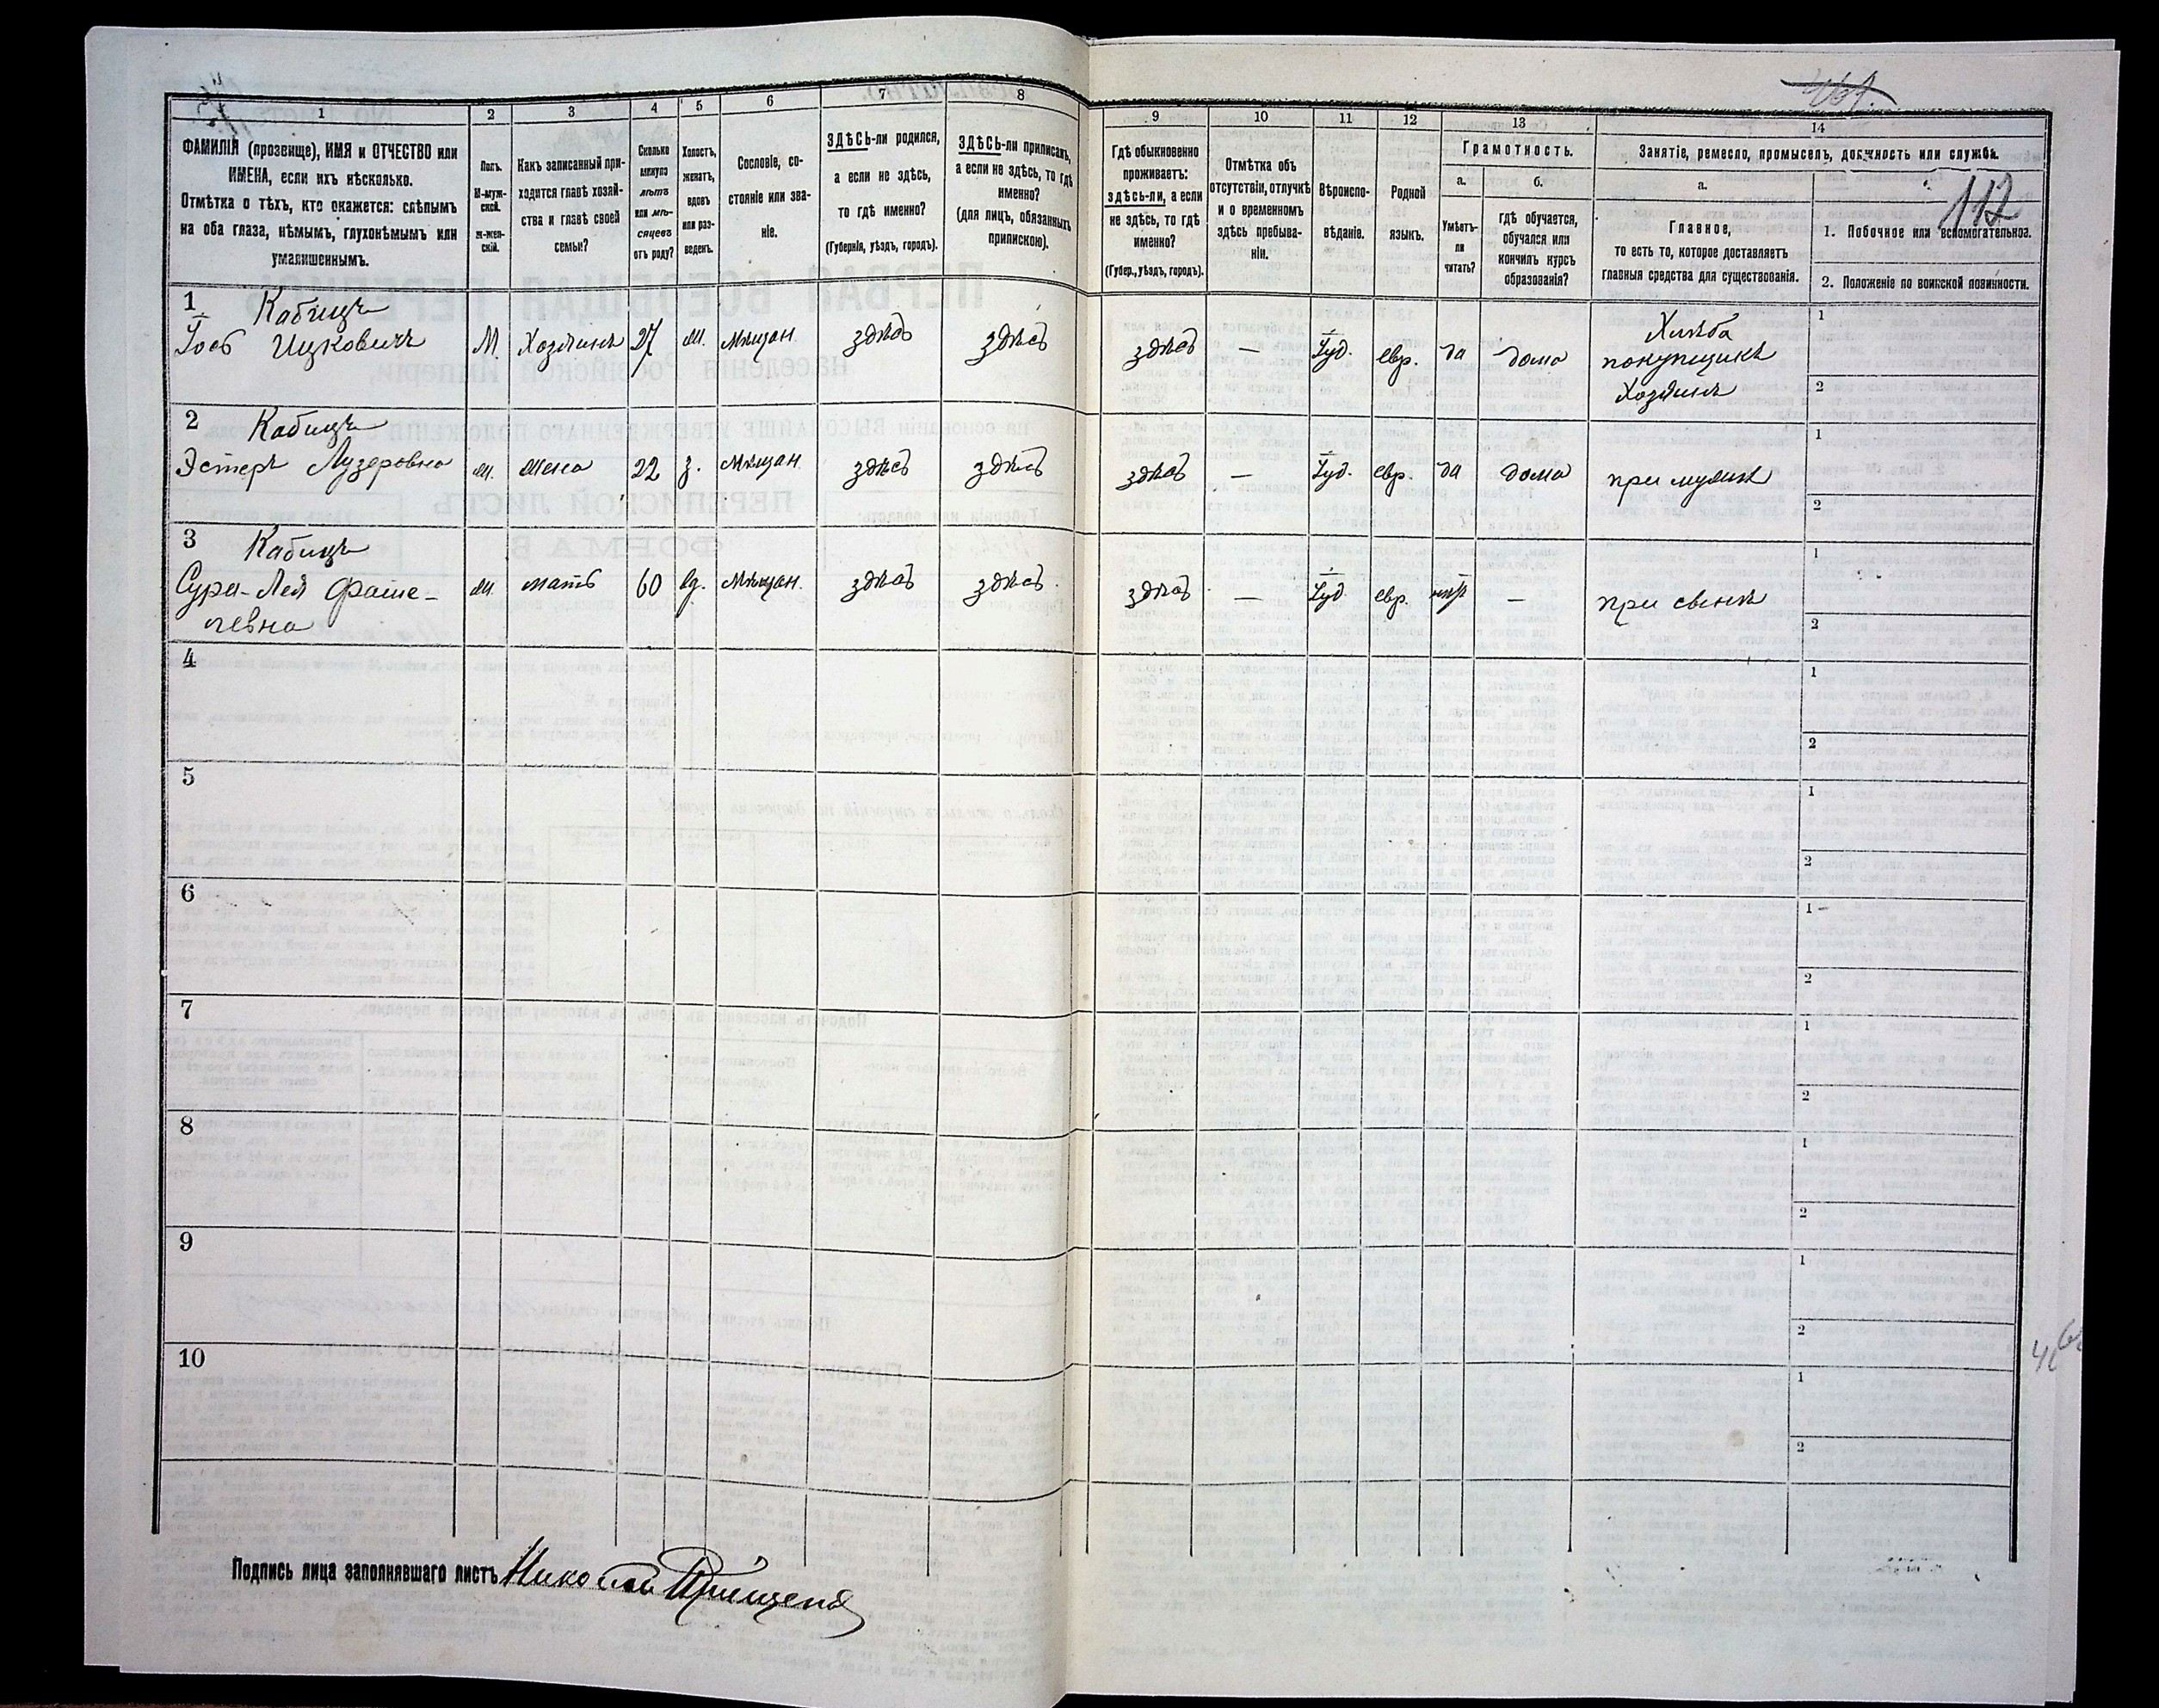 461.
112
1
2
3
4
5
6
7
8
9
10
11
12
13
14
ФАМИЛІЯ (прозвище), ИМЯ и ОТЧЕСТВО или
ИМЕНА, если ихъ нѣсколько.
Отмѣтка о тѣхъ, кто окажется: слѣпымъ
на оба глаза, нѣмымъ, глухонѣмымъ или
умалишеннымъ.
Полъ.
М-муж-
ской.
ж-жен-
скій.
Какъ записанный при-
ходится главѣ хозяй-
ства и главѣ своей
семьи?
Сколько
минуло
лѣтъ
или мѣ-
сяцевъ
отъ роду?
Холостъ,
женатъ,
вдовъ
или раз-
веденъ.
Сословіе, со-
стояніе или зва-
ніе.
ЗДѢСЬ-ли родился,
а если не здѣсь,
то гдѣ именно?
(Губернія, уѣздъ, городъ).
ЗДѢСЬ-ли приписанъ,
а если не здѣсь, то гдѣ
именно?
(для лицъ, обязанныхъ
припискою).
Гдѣ обыкновенно
проживаетъ:
здѣсь-ли, а если
не здѣсь, то гдѣ
именно?
(Губер., уѣздъ, городъ).
Отмѣтка объ
отсутствіи, отлучкѣ
и о временномъ
здѣсь пребыва-
ніи.
Вѣроиспо-
вѣданіе.
Родной
языкъ.
Грамотность.
а.
Умѣетъ-
ли
читать?
б.
гдѣ обучается,
обучался или
кончилъ курсъ
образованія?
Занятіе, ремесло, промыселъ, должность или служба.
а.
Главное,
то есть то, которое доставляетъ
главныя средства для существованія.
1. Побочное или вспомогательное.
2. Положеніе по воинской повинности.
1 Кабицъ
Іосъ Ицковичъ М. Хозяинъ 27 ж. мѣщан. здѣсь здѣсь здѣсь — Іуд. евр. да дома Хлѣба
покупщикъ
Хозяинъ
1
2
2 Кабицъ
Эстеръ Лузеровна ж. жена 22 з. мѣщан. здѣсь здѣсь здѣсь — Іуд. евр. да дома при мужѣ
1
2
3 Кабицъ
Сура-Лея Файше- ж. мать 60 вд. мѣщан. здѣсь здѣсь здѣсь — Іуд. евр. нѣтъ — при сынѣ
левна
1
2
4
1
2
5
1
2
6
1
2
7
1
2
8
1
2
9
1
2
10
1
2
Подпись лица заполнявшаго листъ Николай Прищепа